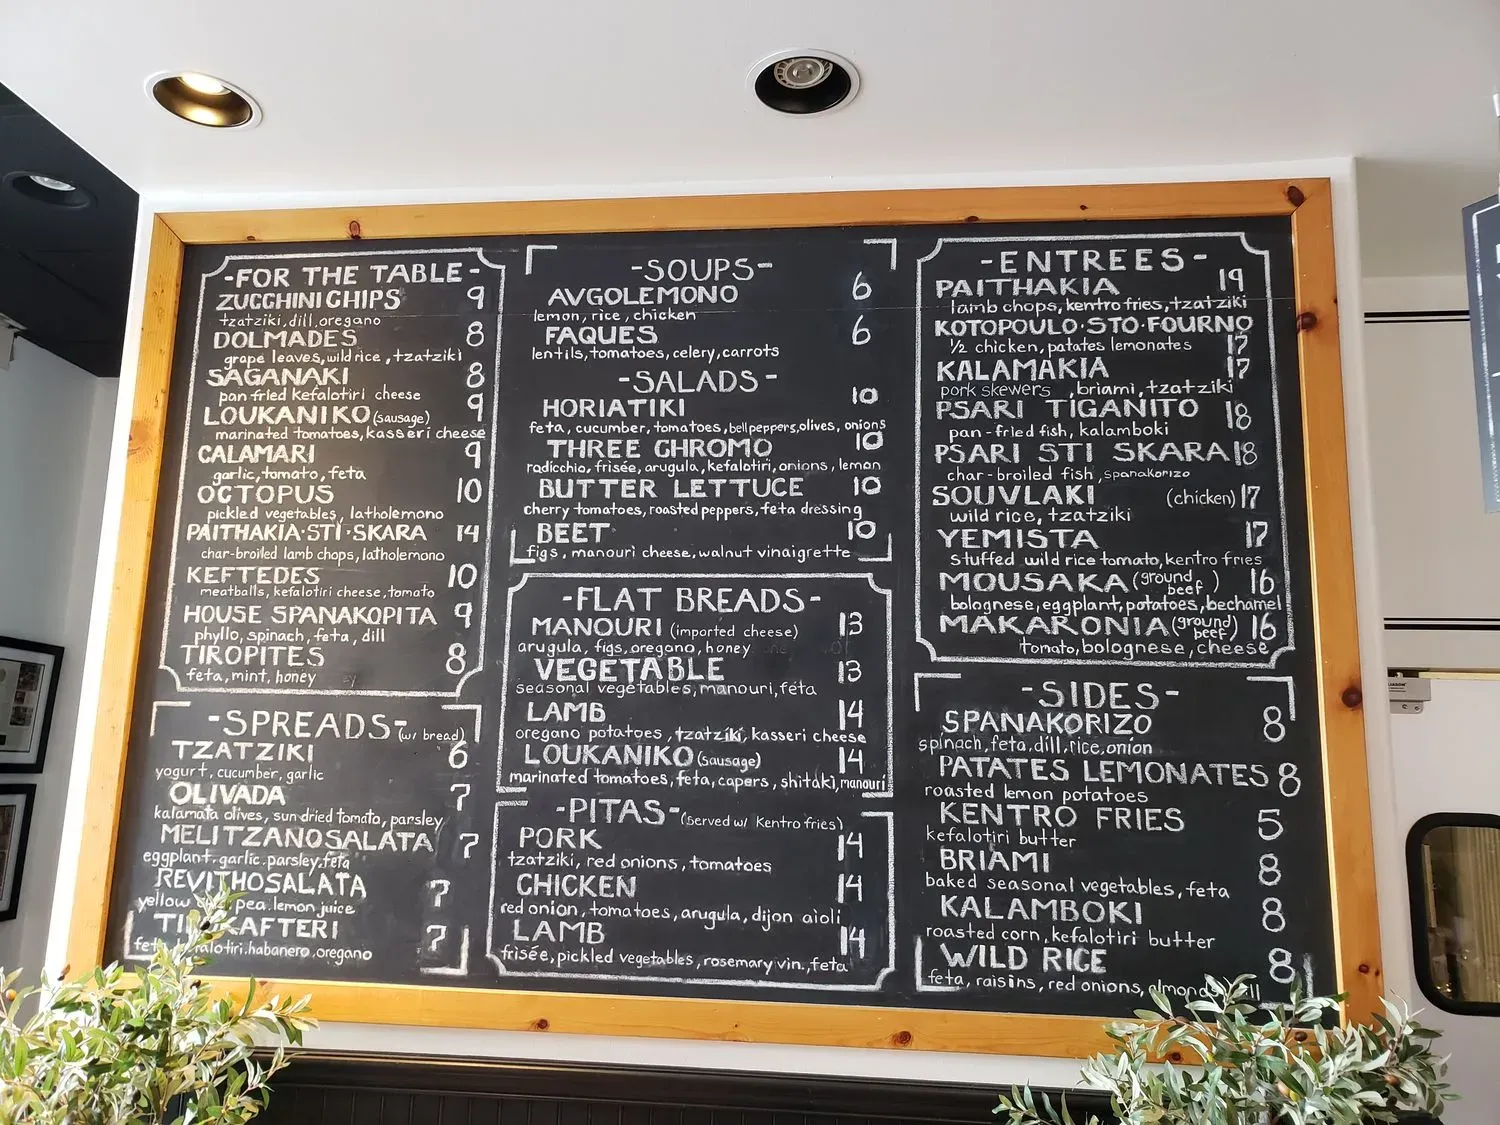 -FOR THE TABLE-
ZUCCHINI CHIPS 9
tzatziki, dill, oregano
DOLMADES 8
grape leaves, wild rice, tzatziki
SAGANAKI 8
pan fried Kefalotiri cheese
LOUKANIKO (sausage) 9
marinated tomatoes, kasseri cheese
CALAMARI 9
garlic, tomato, feta
OCTOPUS 10
pickled vegetables, latholemono
PAITHAKIA·STI·SKARA 14
char-broiled lamb chops, latholemono
KEFTEDES 10
meatballs, kefalotiri cheese, tomato
HOUSE SPANAKOPITA 9
phyllo, spinach, feta, dill
TIROPITES 8
feta, mint, honey
-SPREADS- (w/ bread)
TZATZIKI 6
yogurt, cucumber, garlic
OLIVADA 7
kalamata olives, sun dried tomato, parsley
MELITZANOSALATA 7
eggplant, garlic, parsley, feta
REVITHOSALATA 7
yellow pea, lemon juice
KAFTERI 7
habanero, oregano
-SOUPS-
AVGOLEMONO 6
lemon, rice, chicken
FAQUES 6
lentils, tomatoes, celery, carrots
-SALADS-
HORIATIKI 10
feta, cucumber, tomatoes, bell peppers, olives, onions
THREE CHROMO 10
radicchio, frisée, arugula, kefalotiri, onions, lemon
BUTTER LETTUCE 10
cherry tomatoes, roasted peppers, feta dressing
BEET 10
figs, manouri cheese, walnut vinaigrette
-FLAT BREADS-
MANOURI (imported cheese) 13
arugula, figs, oregano, honey
VEGETABLE 13
seasonal vegetables, manouri, feta
LAMB 14
oregano potatoes, tzatziki, kasseri cheese
LOUKANIKO (sausage) 14
marinated tomatoes, feta, capers, shitaki, manouri
-PITAS- (served w/ Kentro fries)
PORK 14
tzatziki, red onions, tomatoes
CHICKEN 14
red onion, tomatoes, arugula, dijon aioli
LAMB 14
frisée, pickled vegetables, rosemary vin., feta
-ENTREES-
PAITHAKIA 19
lamb chops, kentro fries, tzatziki
KOTOPOULO·STO·FOURNO
½ chicken, patates lemonates 17
KALAMAKIA 17
pork skewers, briami, tzatziki
PSARI TIGANITO 18
pan-fried fish, kalamboki
PSARI STI SKARA 18
char-broiled fish, spanakorizo
SOUVLAKI (chicken) 17
wild rice, tzatziki
YEMISTA 17
stuffed wild rice tomato, kentro fries
MOUSAKA (ground beef) 16
bolognese, eggplant, potatoes, bechamel
MAKARONIA (ground beef) 16
tomato, bolognese, cheese
-SIDES-
SPANAKORIZO 8
spinach, feta, dill, rice, onion
PATATES LEMONATES 8
roasted lemon potatoes
KENTRO FRIES 5
kefalotiri butter
BRIAMI 8
baked seasonal vegetables, feta
KALAMBOKI 8
roasted corn, kefalotiri butter
WILD RICE 8
feta, raisins, red onions, almonds